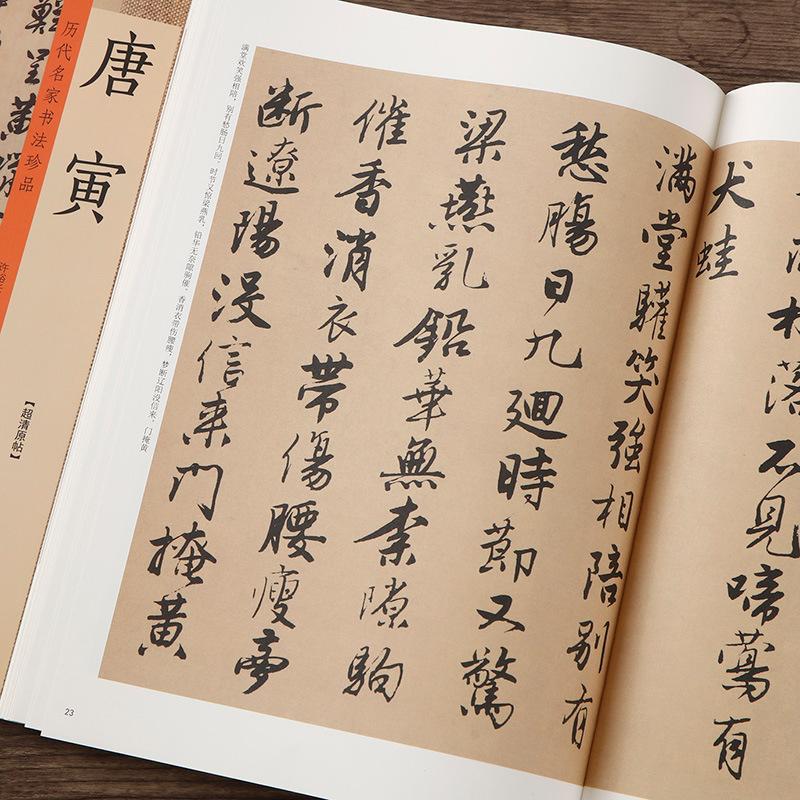 唐寅
历代名家书法珍品
【超清原帖】
村落不見啼鶯有
犬蛙
滿堂驩笑強相陪別有
愁腸日九迴時節又驚
梁燕乳鉛華無柰隙駒
催香消衣帶傷腰瘦夢
斷遼陽沒信来門掩黄
满堂欢笑强相陪，别有愁肠日九回。时节又惊梁燕乳，铅华无奈隙驹催。香消衣带伤腰瘦，梦断辽阳没信来。门掩黄
23